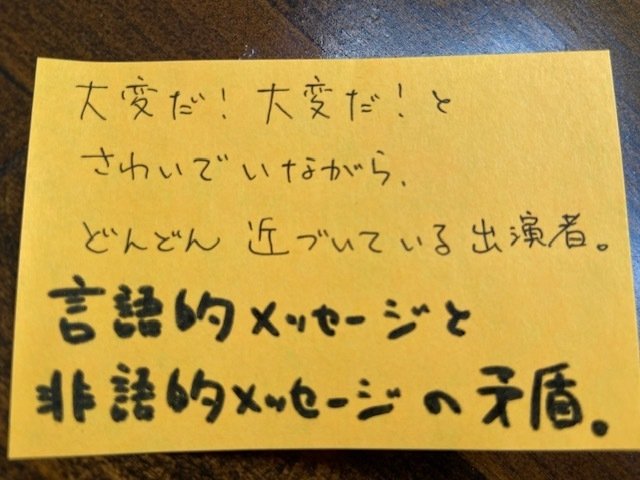 大変だ！大変だ！と
さわいでいながら、
どんどん近づいている出演者。
言語的メッセージと
非語的メッセージの矛盾。